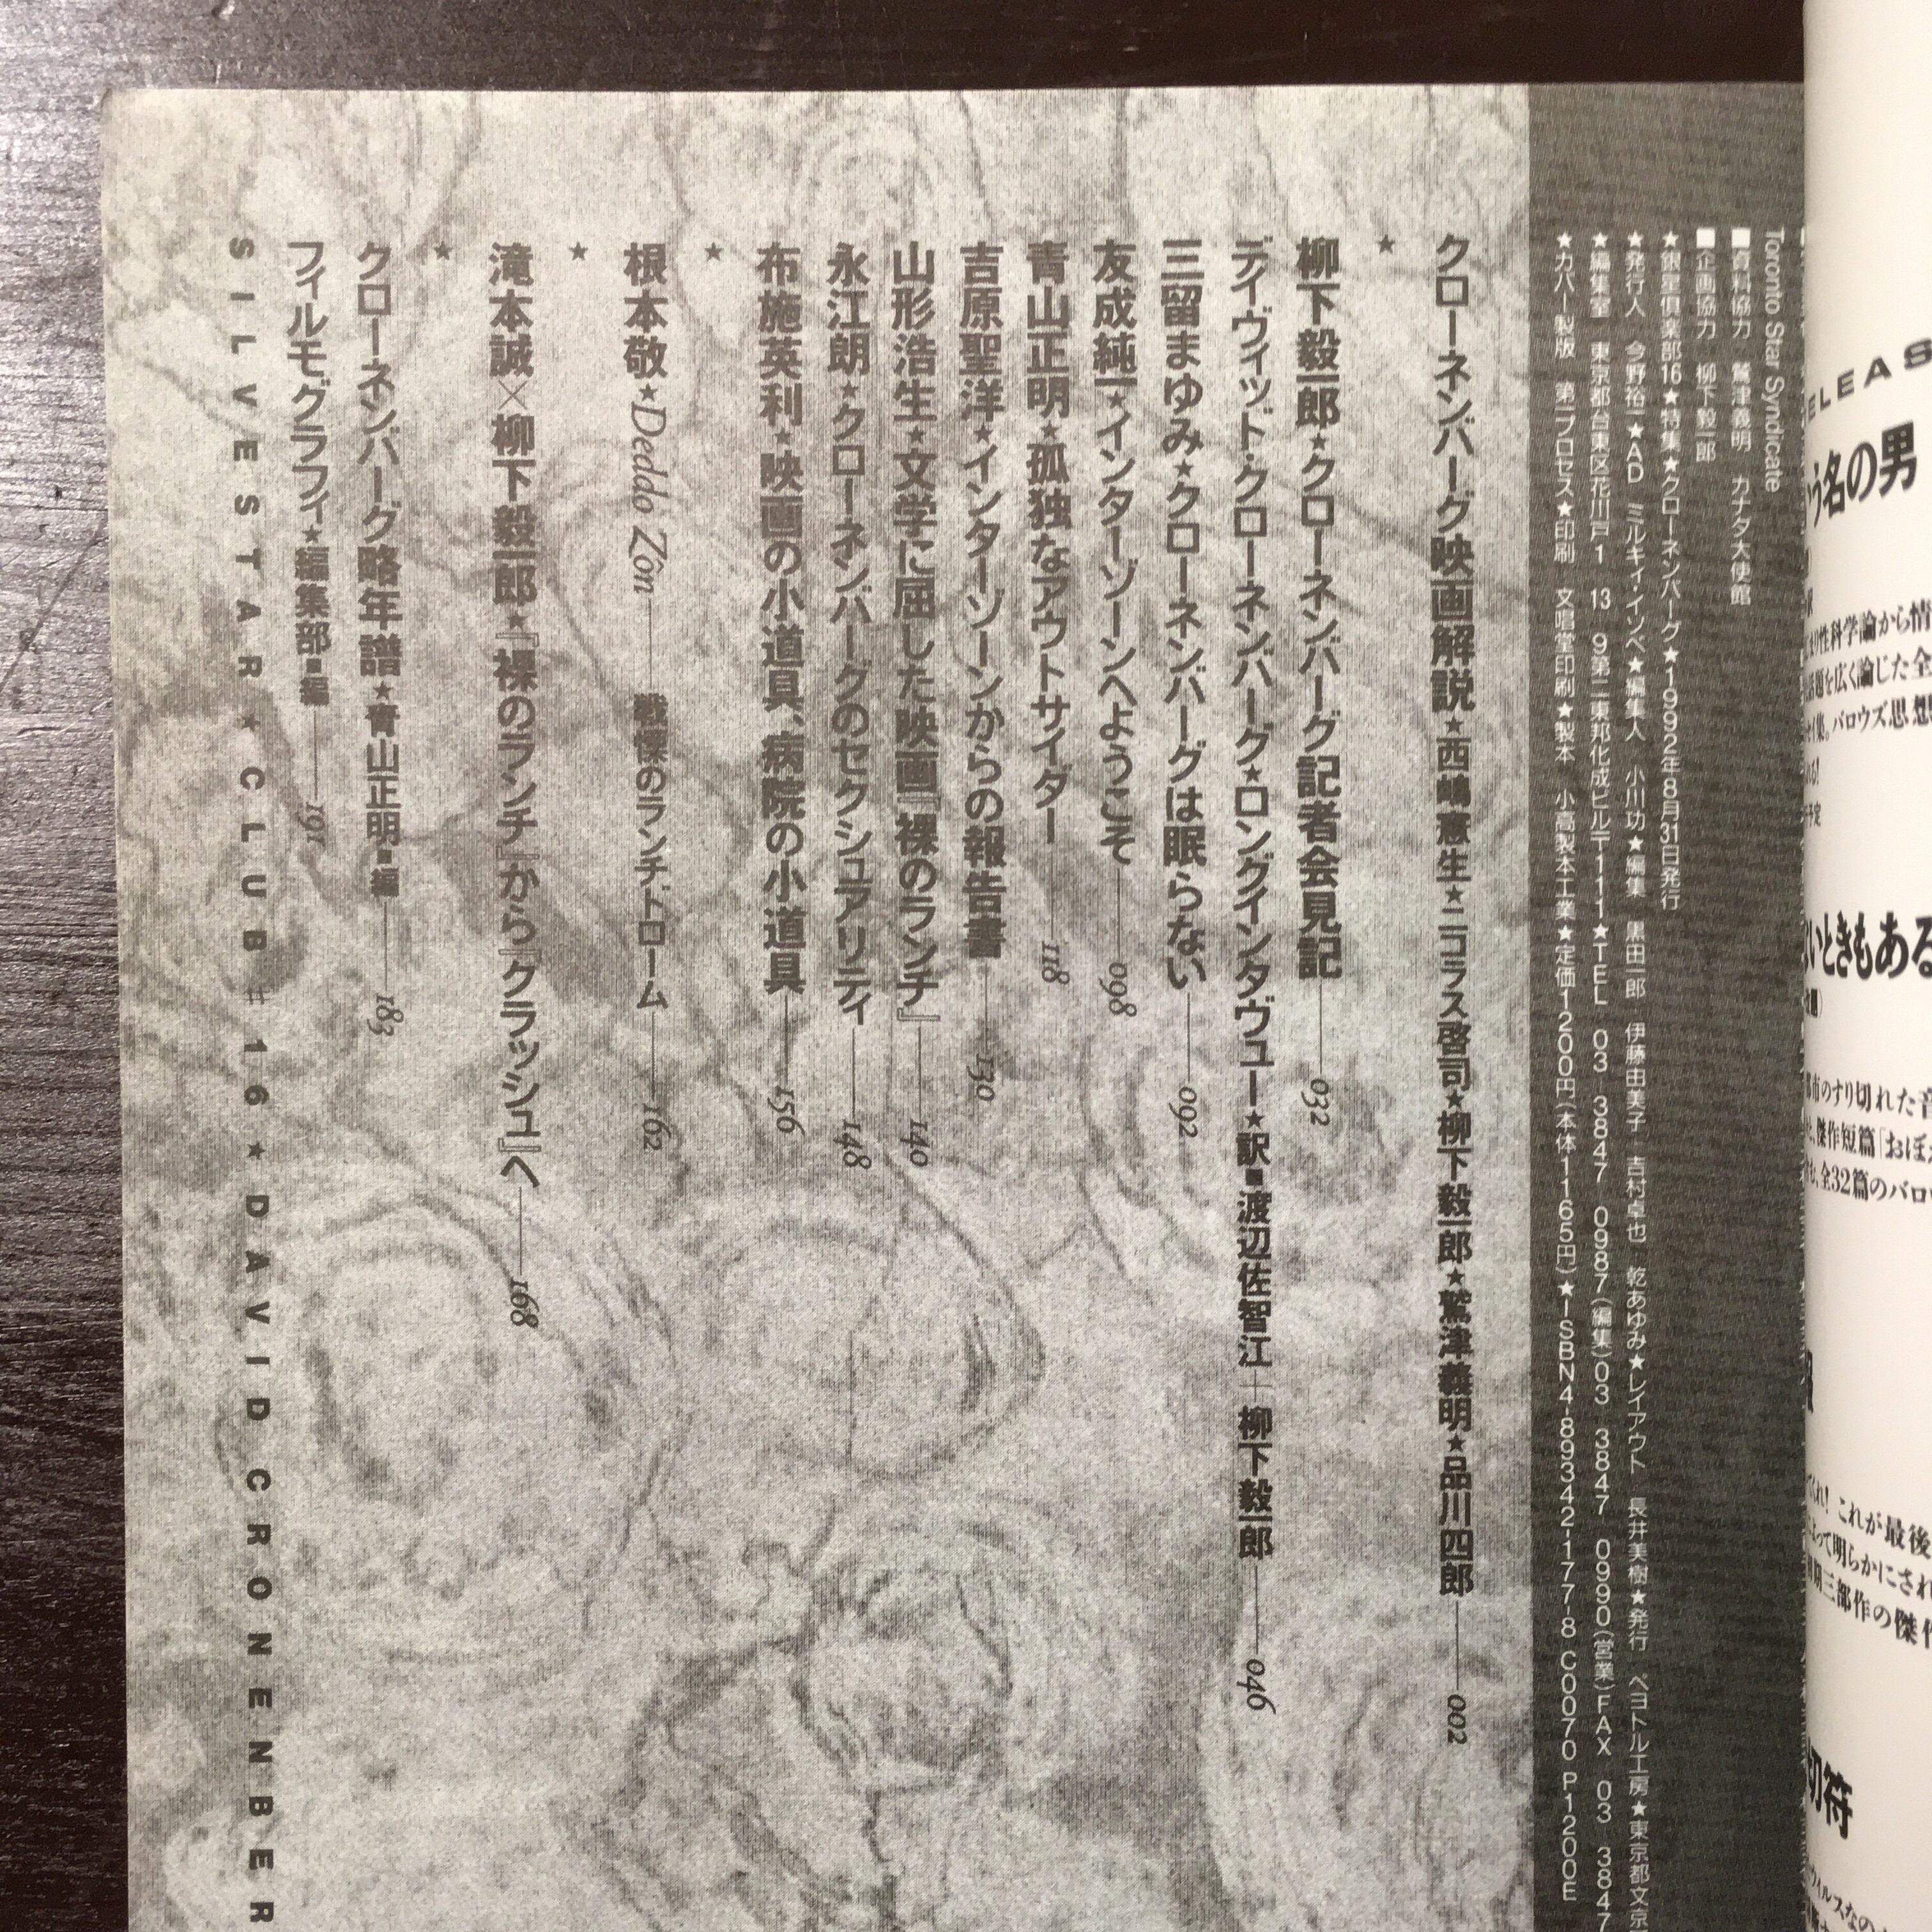 クローネンバーグ映画解説★西嶋憲生★ニコラス啓司★柳下毅一郎★鷲津義明★品川四郎——002
★
柳下毅一郎★クローネンバーグ記者会見記——032
デイヴィッド・クローネンバーグ★ロングインタヴュー★訳■渡辺佐智江＋柳下毅一郎——046
三留まゆみ★クローネンバーグは眠らない——092
友成純一★インターゾーンへようこそ——098
青山正明★孤独なアウトサイダー——118
吉原聖洋★インターゾーンからの報告書——130
山形浩生★文学に屈した映画『裸のランチ』——140
永江朗★クローネンバーグのセクシュアリティ——148
布施英利★映画の小道具、病院の小道具——156
★
根本敬★Deddo Zôn——戦慄のランチ、ドローム——162
★
滝本誠×柳下毅一郎★『裸のランチ』から『クラッシュ』へ——168
★
クローネンバーグ略年譜★青山正明■編——183
フィルモグラフィ★編集部■編——191
SILVESTAR★CLUB #16★DAVID CRONENBER
Toronto Star Syndicate
■資料協力　鷲津義明　カナダ大使館
■企画協力　柳下毅一郎
★銀星倶楽部16★特集★クローネンバーグ★1992年8月31日発行
★発行人　今野裕一★AD　ミルキィ・イソベ★編集人　小川功★編集　黒田一郎　伊藤由美子　吉村卓也　乾あゆみ★レイアウト　長井美樹★発行　ペヨトル工房★東京都文京
★編集室　東京都台東区花川戸1　13　9第二東邦化成ビル〒111★TEL　03　3847　0987(編集)03　3847　0990(営業)FAX　03　3847
★カバー製版　第一プロセス★印刷　文唱堂印刷★製本　小高製本工業★定価1200円(本体1165円)★ISBN4-89342-177-8 C0070 P1200E
ELEAS
う名の男
性科学論から情
話題を広く論じた全
集。バロウズ思想
予定
いときもある
都市のすり切れた音
傑作短篇「おぼえ
全32篇のバロ
くれ！ これが最後
って明らかにされ
期三部作の傑作
切符